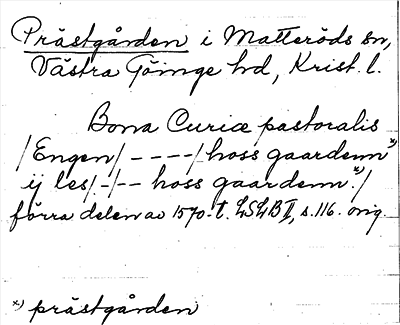 Prästgården i Matteröds sn,
Västra Göinge hd, Krist. l.
Bona Curiæ pastoralis
/Engen/ ----/ hoss gaardenn x)
ij les/-/-- hoss gaardenn x)/
förra delen av 1570-t. LSLB II, s. 116. orig.
x) prästgården